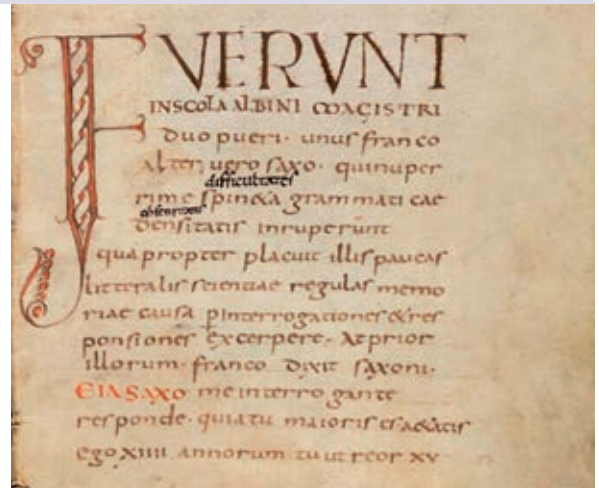 FVERVNT
IN SCOLA ALBINI MAGISTRI
duo pueri· unus franco
alter uero saxo· qui nuper
difficultates
rime spinęa grammaticae
densitatis inruperunt
quapropter placuit illis paucas
litteralis scientiae regulas memo
riae causa p interrogationes & res
ponsiones excerpere· At prior
illorum· franco dixit saxoni·
EIA SAXO me interrogante
responde· quia tu maioris es aetatis
ego XIIII annorum· tu ut reor XV